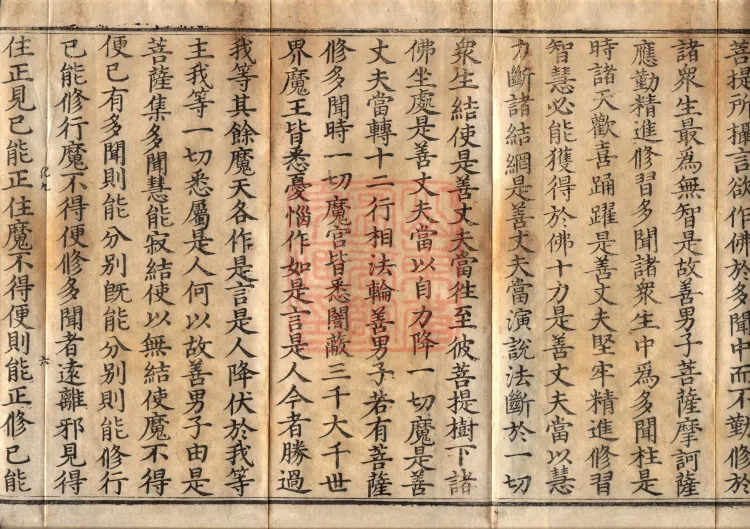 菩提所攝言欲作佛於多聞中而不勤修於
諸衆生最為無智是故善男子菩薩摩訶薩
應勤精進修習多聞諸衆生中為多聞柱是
時諸天歡喜踊躍是善丈夫堅牢精進修習
智慧必能獲得於佛十力是善丈夫當以慧
力斷諸結網是善丈夫當演說法斷於一切
衆生結使是善丈夫當往至彼菩提樹下諸
佛坐處是善丈夫當以自力降一切魔是善
丈夫當轉十二行相法輪善男子若有菩薩
修多聞時一切魔宫皆悉闇蔽三千大千世
界魔王皆悉憂惱作如是言是人今者勝過
我等其餘魔天各作是言是人降伏於我等
主我等一切悉屬是人何以故善男子由是
菩薩集多聞慧能寂結使以無結使魔不得
便已有多聞則能分别旣能分别則能修行
已能修行魔不得便修多聞者遠離邪見得
化九
六
住正見已能正住魔不得便則能正修已能